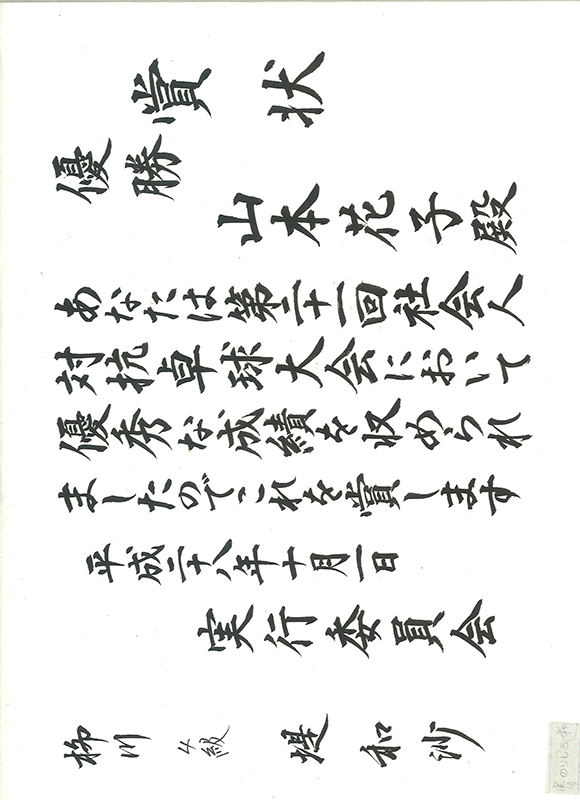 賞状
優勝
山本花子殿
あなたは第二十一回社会人
対抗卓球大会において
優秀な成績を収められ
ましたのでこれを賞します
平成二十八年十月一日
実行委員会
柳川 4級 堤 和沙
のりしろ